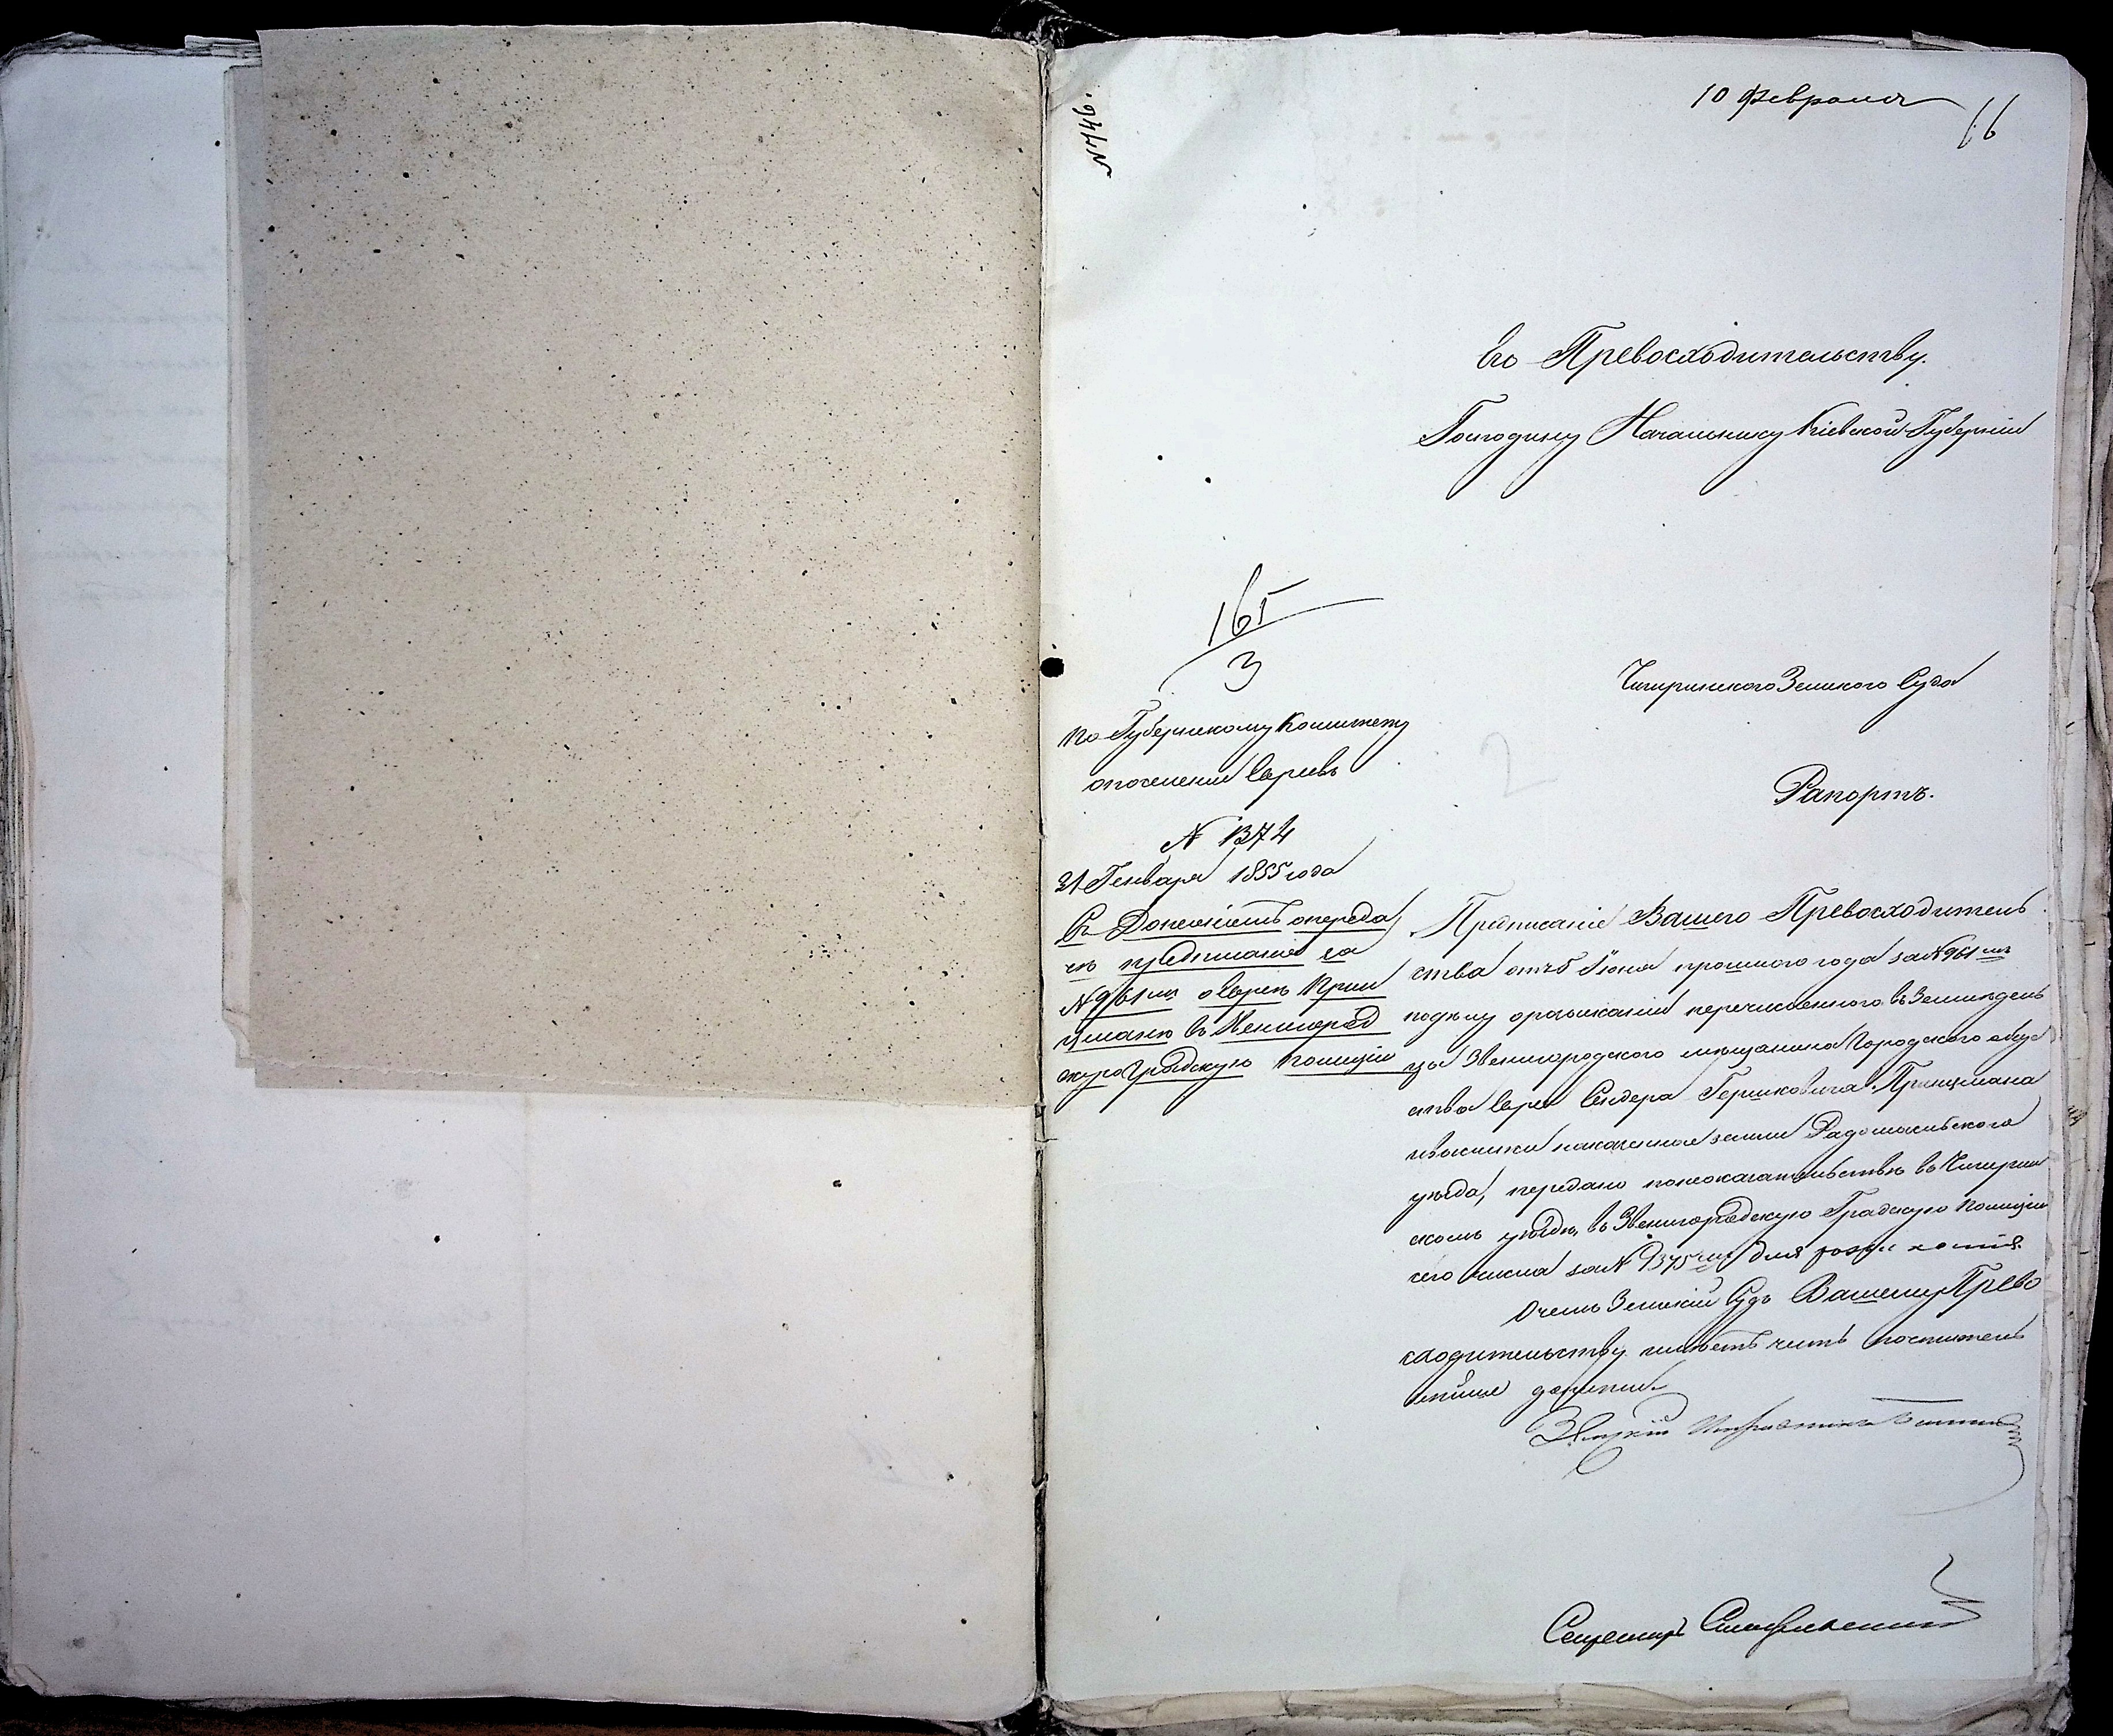 10 Февраля
16
№446.
Его Превосходительству.
Господину Начальнику Кіевской Губерніи
165
3
Чигиринскаго Земскаго Суда
По Губернскому Комитету
о поселеніи Евреевъ
2
Рапортъ.
N 1374
31 Генваря 1855 года
Съ Донесеніемъ о переда
чѣ предписанія за
N 961 мъ о Евреѣ Приц
цманѣ въ Звенигород
скую Градскую Полицію
Предписаніе Вашего Превосходитель
ства отъ 5 Іюня прошлаго года за N 961 мъ
по дѣлу о розысканіи перечисленнаго въ Земледѣль
цы Звенигородскаго мѣщанина Городскаго общес
тва Еврея Сендера Гершковича Прицмана
на казенныя земли Радомысльскаго
уѣзда, передано по жительству въ Чигирин
скомъ уѣздѣ, въ Звенигородскую Градскую Полицію
сего числа за N 1375 мъ для
О чемъ Земскій Судъ Вашему Прево
сходительству имѣетъ честь почтитель
нѣйше донести.
Земскій Исправникъ
Секретарь